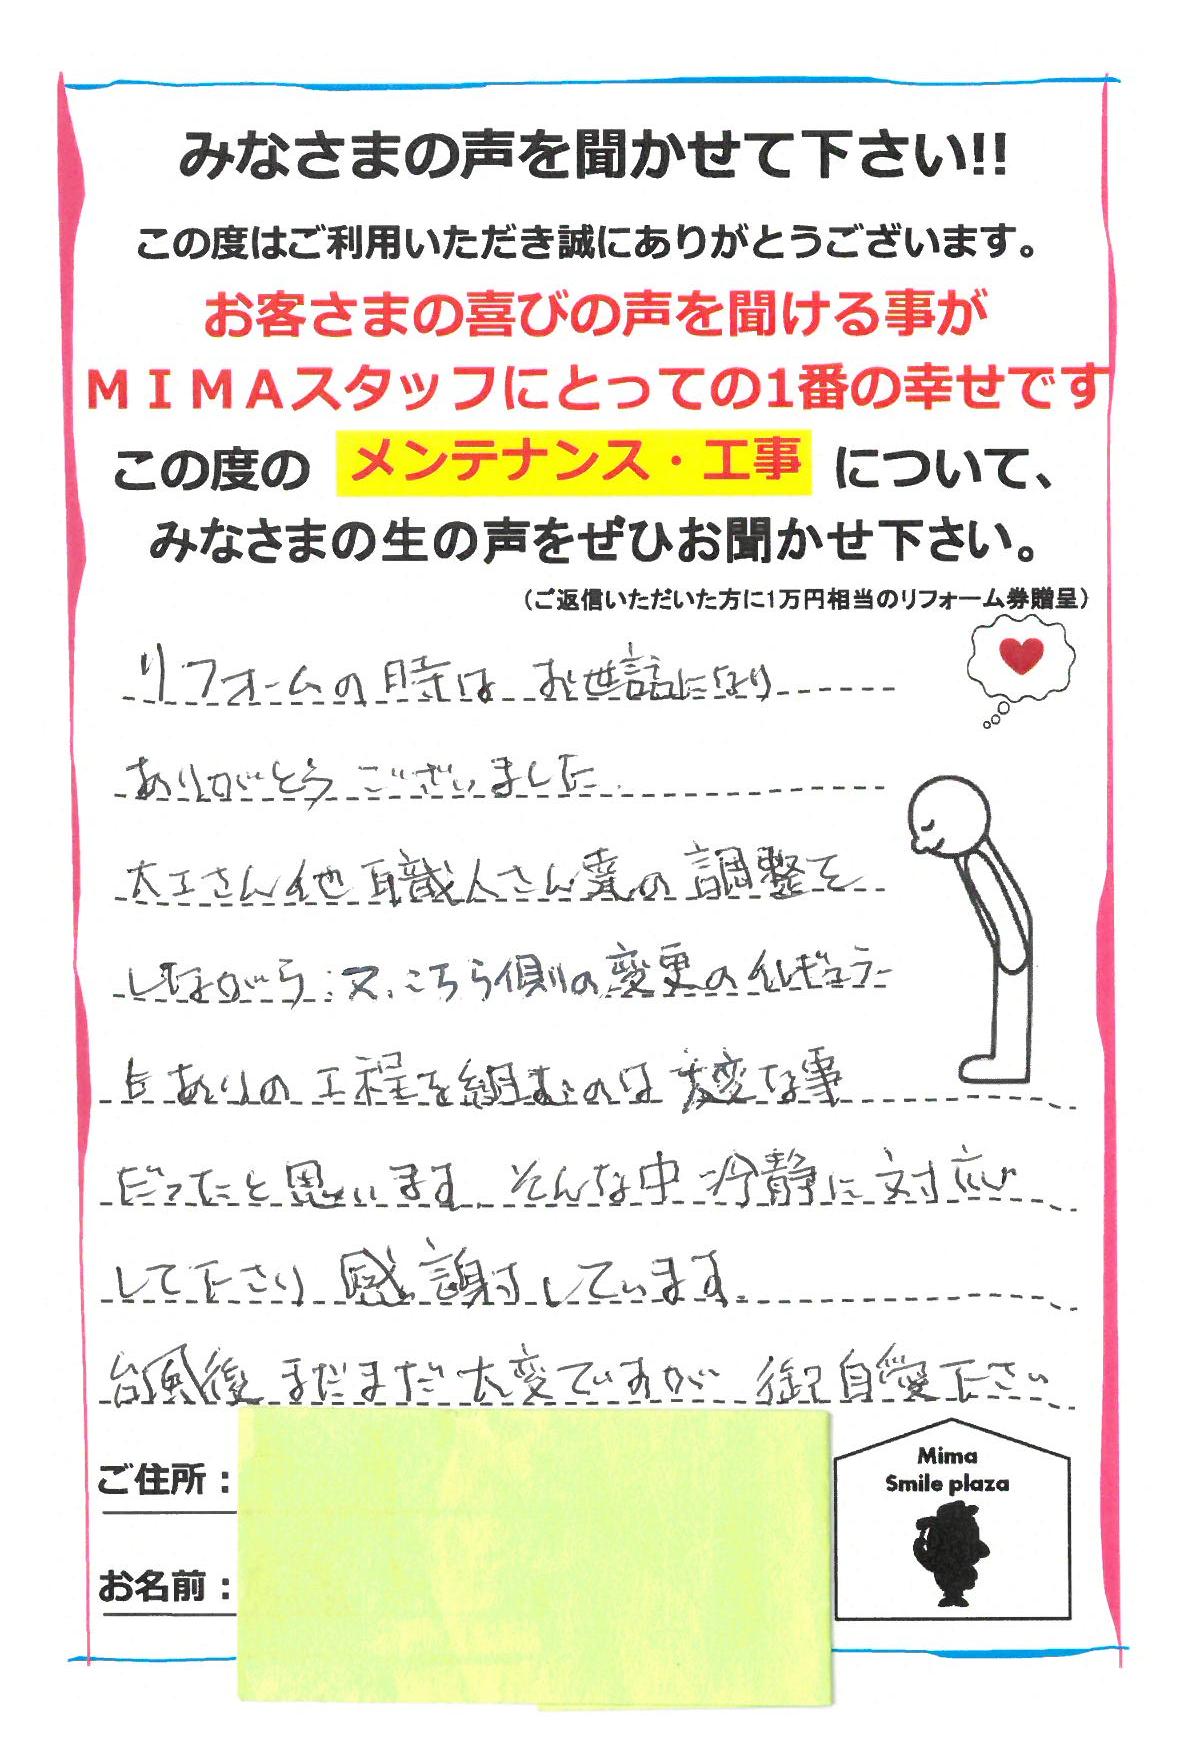 みなさまの声を聞かせて下さい!!
この度はご利用いただき誠にありがとうございます。
お客さまの喜びの声を聞ける事が
ＭＩＭＡスタッフにとっての1番の幸せです
この度の メンテナンス・工事 について、
みなさまの生の声をぜひお聞かせ下さい。
（ご返信いただいた方に1万円相当のリフォーム券贈呈）
リフォームの時は お世話になり
ありがとうございました。
大工さん他 職人さん達の調整を
しながら、又、こちら側の変更のイレギュラー
もありの工程を組むのは大変な事
だったと思います。そんな中 冷静に対応
して下さり 感謝しています。
台風後 まだまだ大変ですが 御自愛下さい
ご住所：
お名前：
Mima
Smile plaza